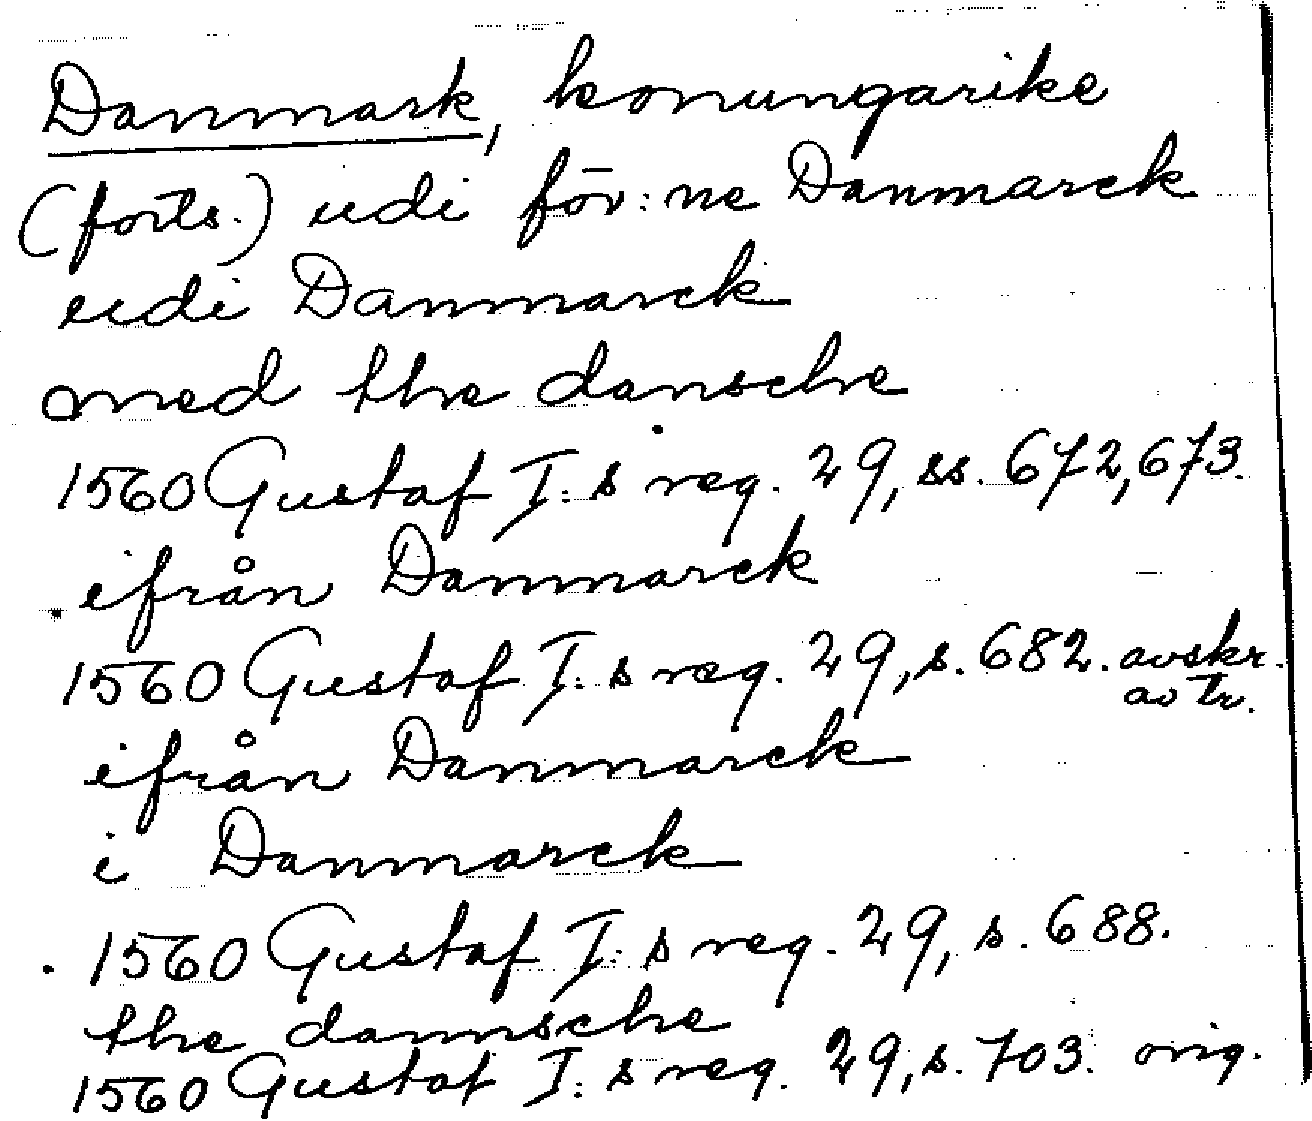 Danmark, konungarike
(forts.) udi föv:ne Danmarck
udi Danmarck
med the dansche
1560 Gustaf I:s reg. 29, ss. 672, 673.
ifrån Danmarck
1560 Gustaf I:s reg. 29, s. 682. avskr.
av tr.
ifrån Danmarck
i Danmarck
1560 Gustaf I:s reg. 29, s. 688.
the dannsche
1560 Gustaf I:s reg. 29, s. 703. orig.